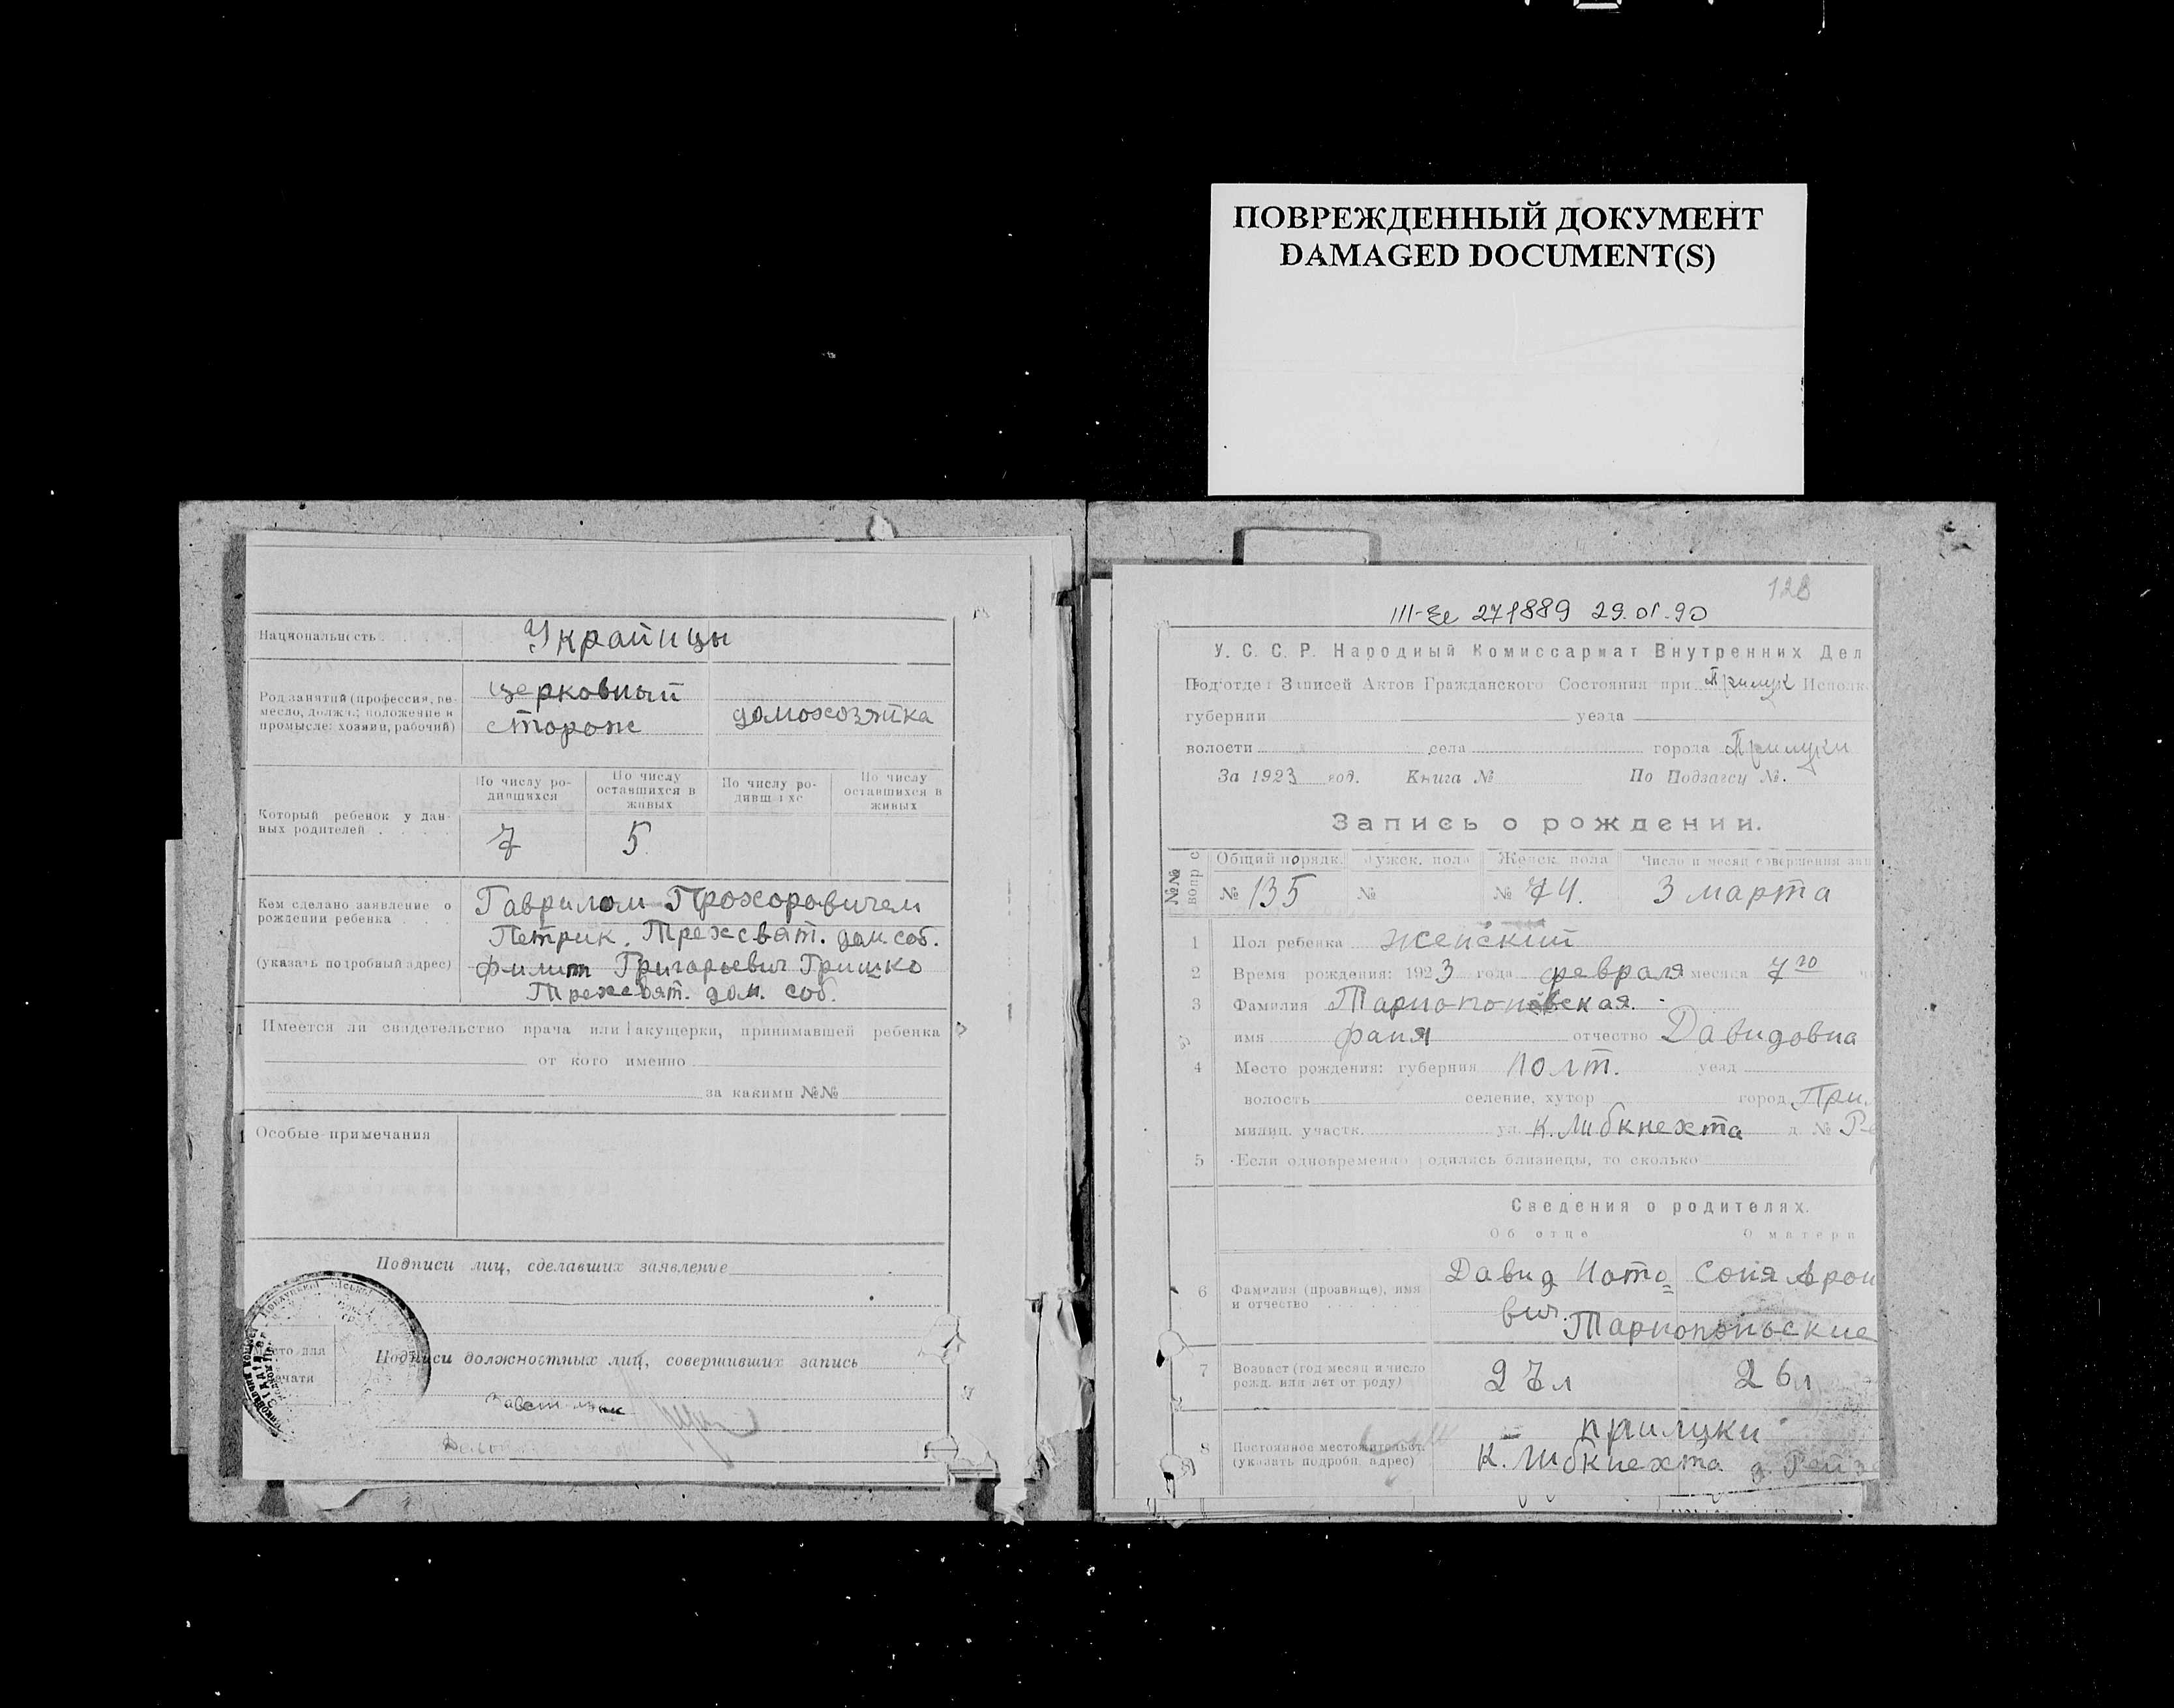 ПОВРЕЖДЕННЫЙ ДОКУМЕНТ
DAMAGED DOCUMENT(S)
Национальность Украинцы
Род занятий (профессия, ре-
месло, должн.; положение в
промысле: хозяин, рабочий)
церковный
сторож
домохозяйка
Который ребенок у дан-
ных родителей
По числу ро-
дившихся
По числу
оставшихся в
живых
По числу ро-
дивш
По числу
оставшихся в
живых
7 5
Кем сделано заявление о
рождении ребенка
(указать подробный адрес)
Гаврилом Прохоровичем
Петрик. Трехсвят. дом. соб.
Филип Григорьевич Гришко
Трехсвят. дом. соб.
Имеется ли свидетельство врача или акушерки, принимавшей ребенка
от кого именно
за какими №№
Особые примечания
Подписи лиц, сделавших заявление
Место для
печати
Подписи должностных лиц, совершивших запись
128
III-Ее 271889 29.01.90
У. С. С. Р. Народный Комиссариат Внутренних Дел
Подотдел Записей Актов Гражданского Состояния при Прилук Исполк
губернии уезда
волости села города Прилуки
За 1923 год. Книга № По Подзагсу №.
Запись о рождении.
№№
вопр
Общий порядк. Мужск. пола Женск. пола Число и месяц совершения зап
№ 135 № № 74. 3 марта
1 Пол ребенка женский
2 Время рождения: 1923 года февраля месяца 7го
3 Фамилия Тарнопольская.
имя Фаня отчество Давидовна
4 Место рождения: губерния Полт. уезд
волость селение, хутор город При.
милиц. участк. ул. К. Либкнехта д. № Ре
5 Если одновременно родились близнецы, то сколько
Сведения о родителях.
Об отце О матери
6 Фамилия (прозвище), имя
и отчество
Давид Ното Соня Арон
вич. Тарнопольские
7 Возраст (год месяц и число
рожд. или лет от роду)
27 л 26 л
8 Постоянное местожительст.
(указать подробн. адрес)
Прилуки
К. Либкнехта д. Рейзе